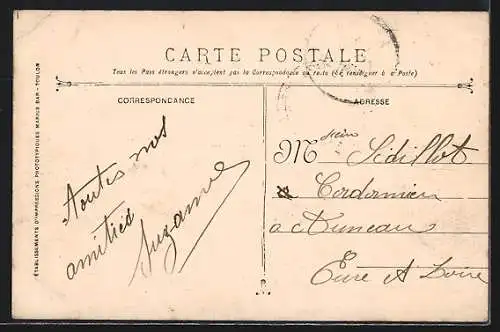 CARTE POSTALE
Tous les Pays étrangers n'acceptent pas la Correspondance au recto (Se renseigner à la Poste)
CORRESPONDANCE
ADRESSE
ÉTABLISSEMENTS D'IMPRESSIONS PHOTOTYPIQUES MARIUS BAR - TOULON
toutes nos
amitiés
Suzanne
Msieur Sédillot
Cordonnier
a Auneau
Eure et Loire